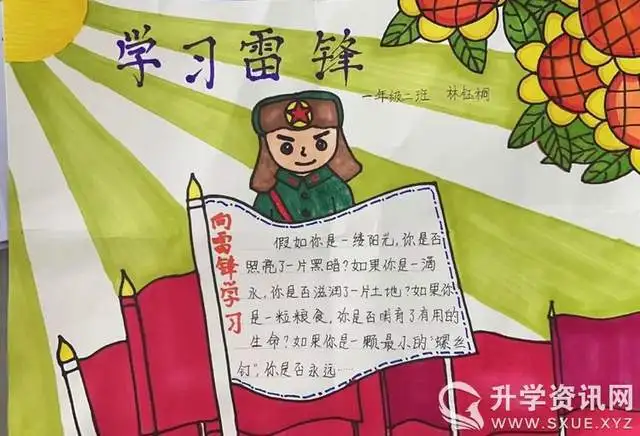 学习雷锋
一年级二班 林钰桐
向雷锋学习
假如你是一缕阳光,你是否
照亮了一片黑暗?如果你是一滴
水,你是否滋润了一片土地?如果你
是一粒粮食,你是否哺育了有用的
生命?如果你是一颗最小的“螺丝
钉”,你是否永远……
升学资讯网
WWW.SXUE.XYZ